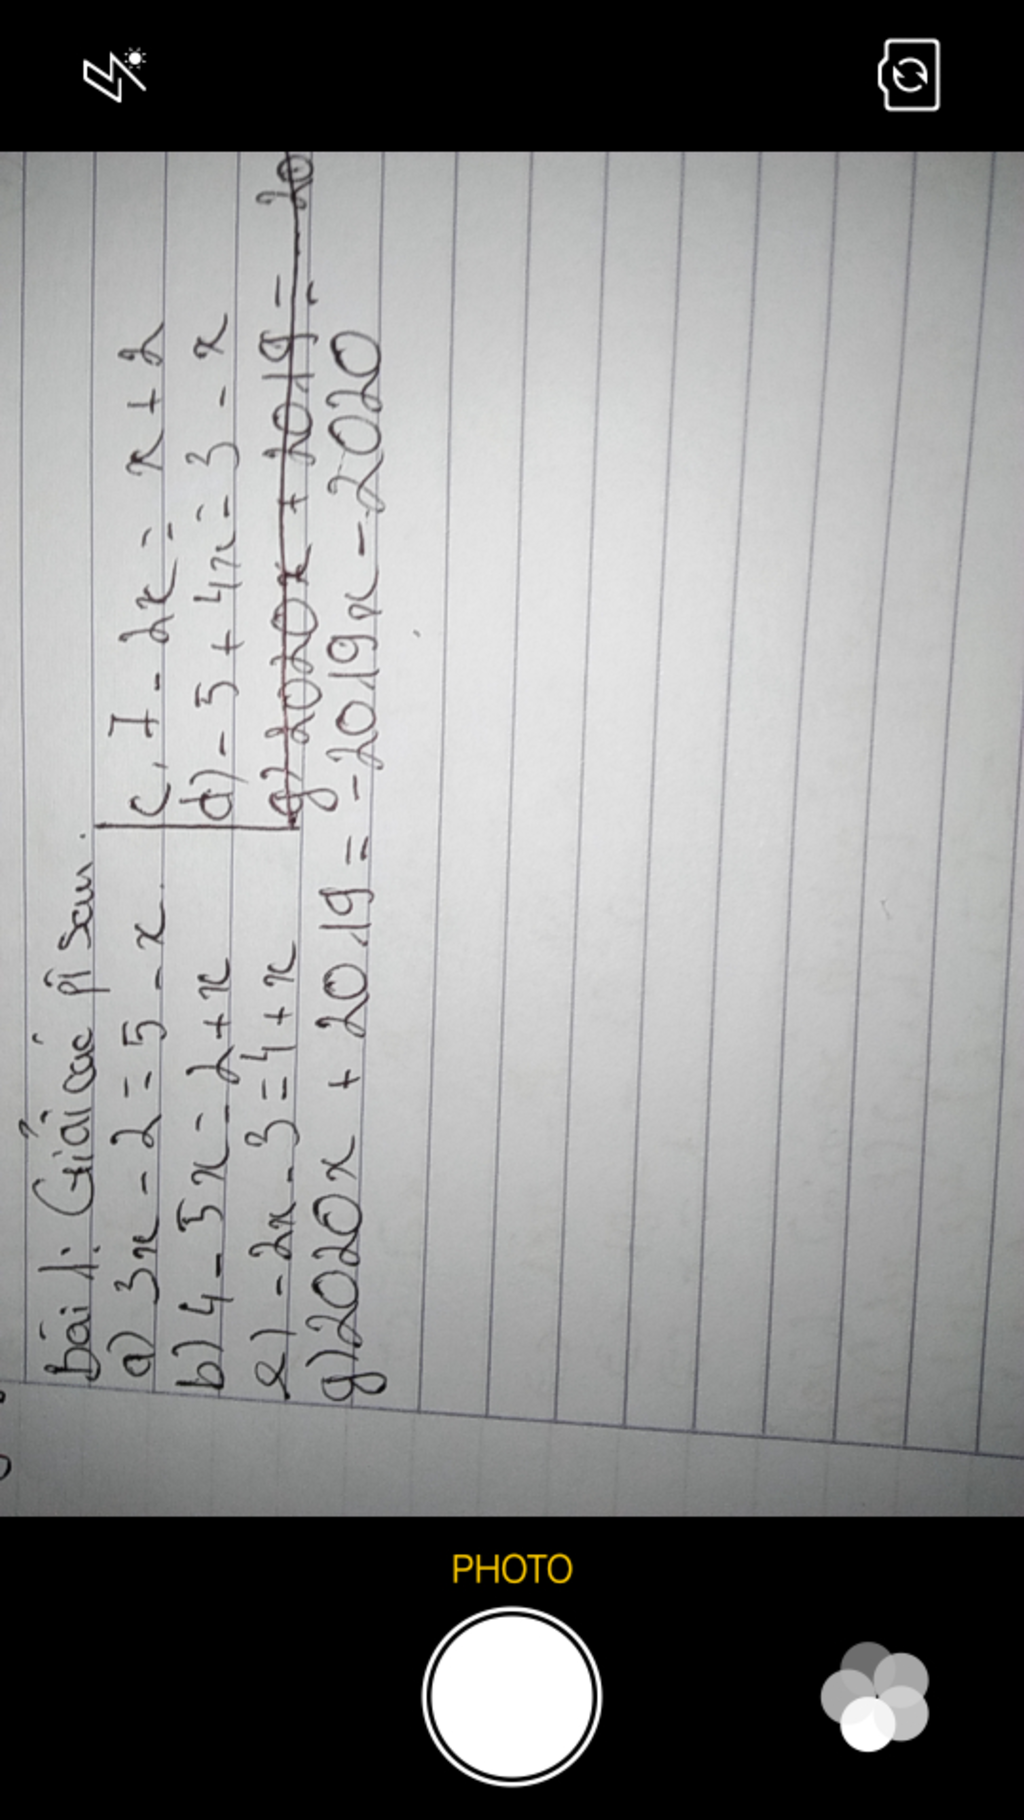 Bài 1: Giải các pt sau.
a) 3x - 2 = 5 - x.
c, 7 - 2x = x + 2
b) 4 - 5x = 2 + x
d) - 5 + 4x = 3 - x
e) - 2x - 3 = 4 + x
g) 2020x + 2019 = - 20
g) 2020x + 2019 = -2019x - 2020
PHOTO